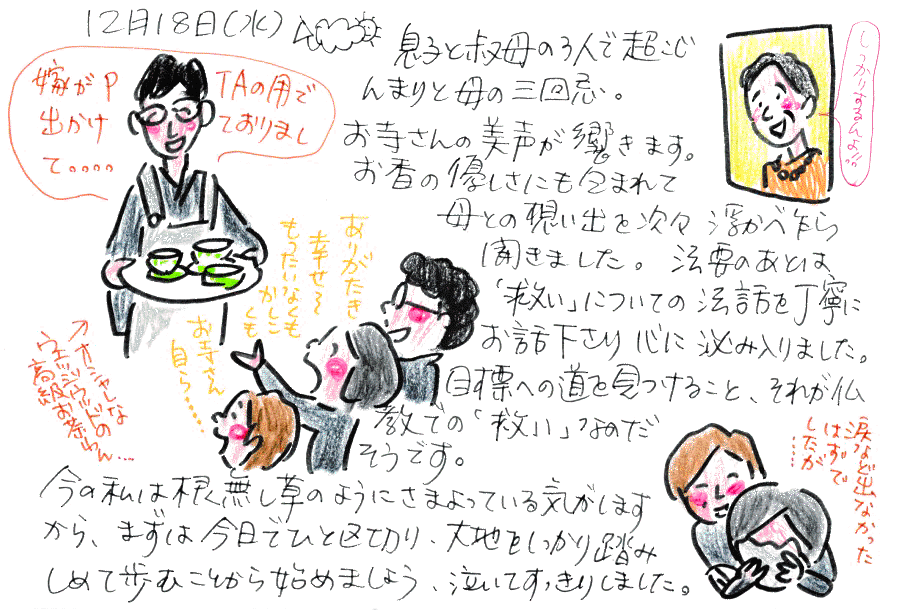 12月18日(水)
息子と叔母の3人で超こじ
んまりと母の三回忌。
お寺さんの美声が響きます。
お香の優しさにも包まれて
母との想い出を次々浮かべ乍ら
聞きました。法要のあとは
「救い」についての法話を丁寧に
お話下さり心に沁み入りました。
目標への道を見つけること、それが仏
教での「救い」なのだ
そうです。
今の私は根無し草のようにさまよっている気がします
から、まずは今日でひと区切り、大地をしっかり踏み
しめて歩むことから始めましょう、泣いてすっきりしました。
嫁がPTAの用で
出かけておりまし
て。。。。。
しっかりするんよ!!
ありがたき
幸せ〜
もったいなくも
かしこくも
お寺さん
自ら……
↗オシャレな
ウェッジウッドの
高級お茶わん…
涙など出なかった
はずで
したが……